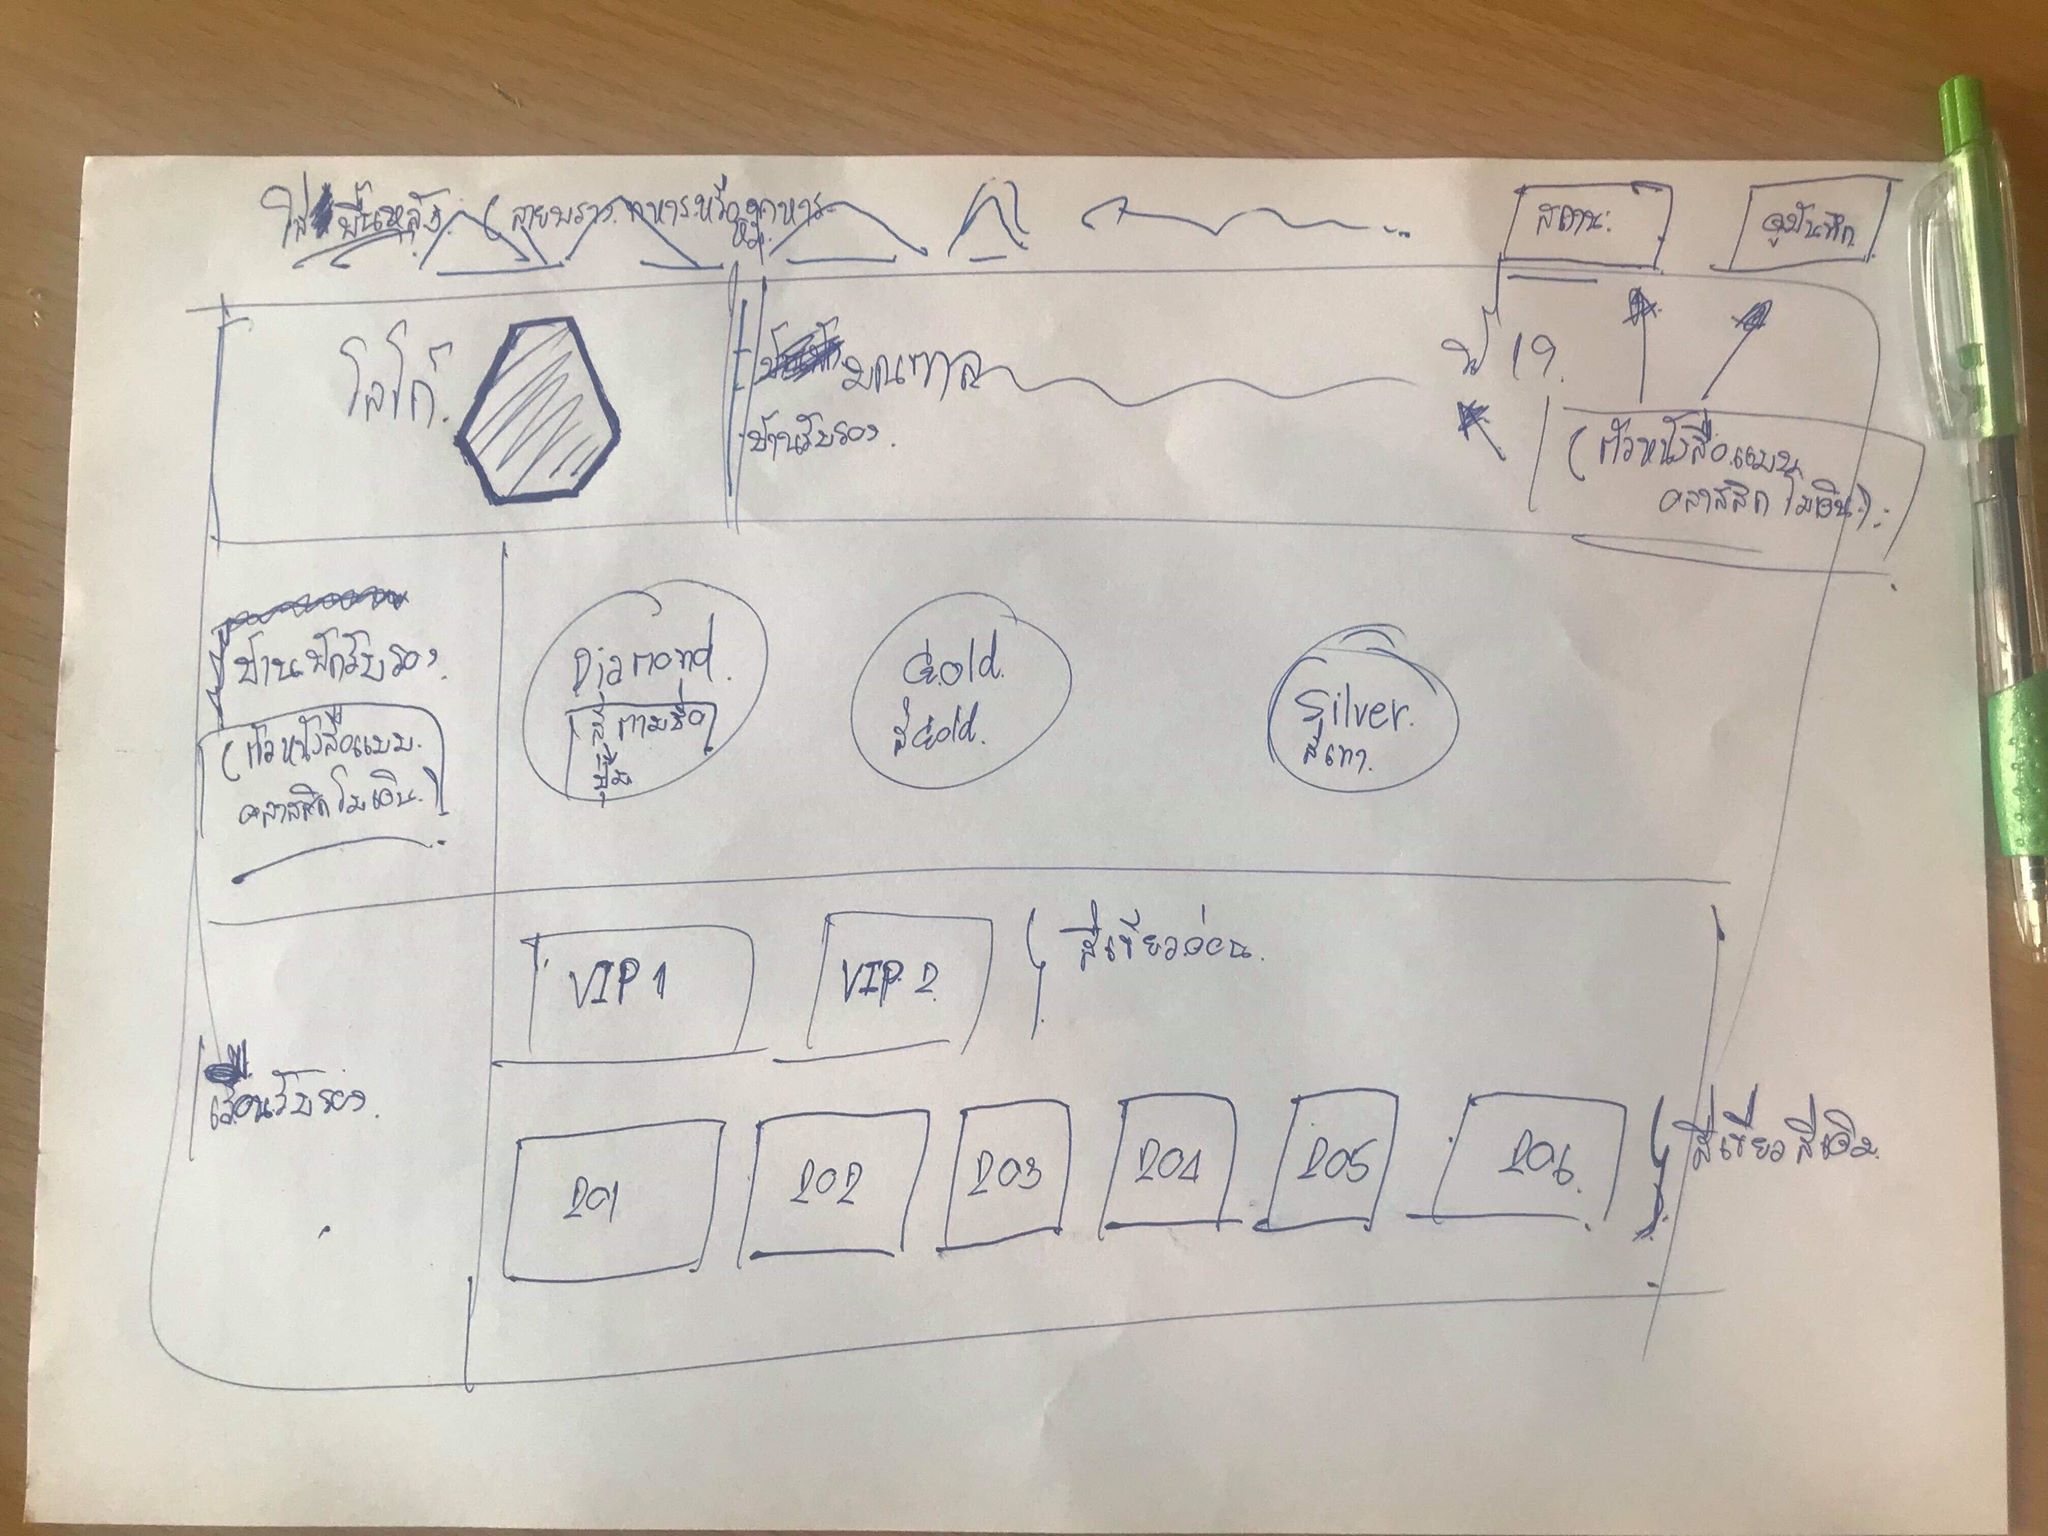 ใส่พื้นหลัง (ลายพราง ทหาร หรือ
สถานะ
ดูบันทึก
โลโก้
มณฑล
19
บ้านรับรอง
(ตัวหนังสือแบบ
คลาสสิค โมเดิน)
บ้านพักรับรอง
(ตัวหนังสือแบบ
คลาสสิค โมเดิน)
Diamond
สี ตามชื่อ
Gold
สี Gold
Silver
สีเทา
VIP 1
VIP 2
สีเขียวอ่อน
เรือนรับรอง
201
202
203
204
205
206
สีเขียว สีเดิม